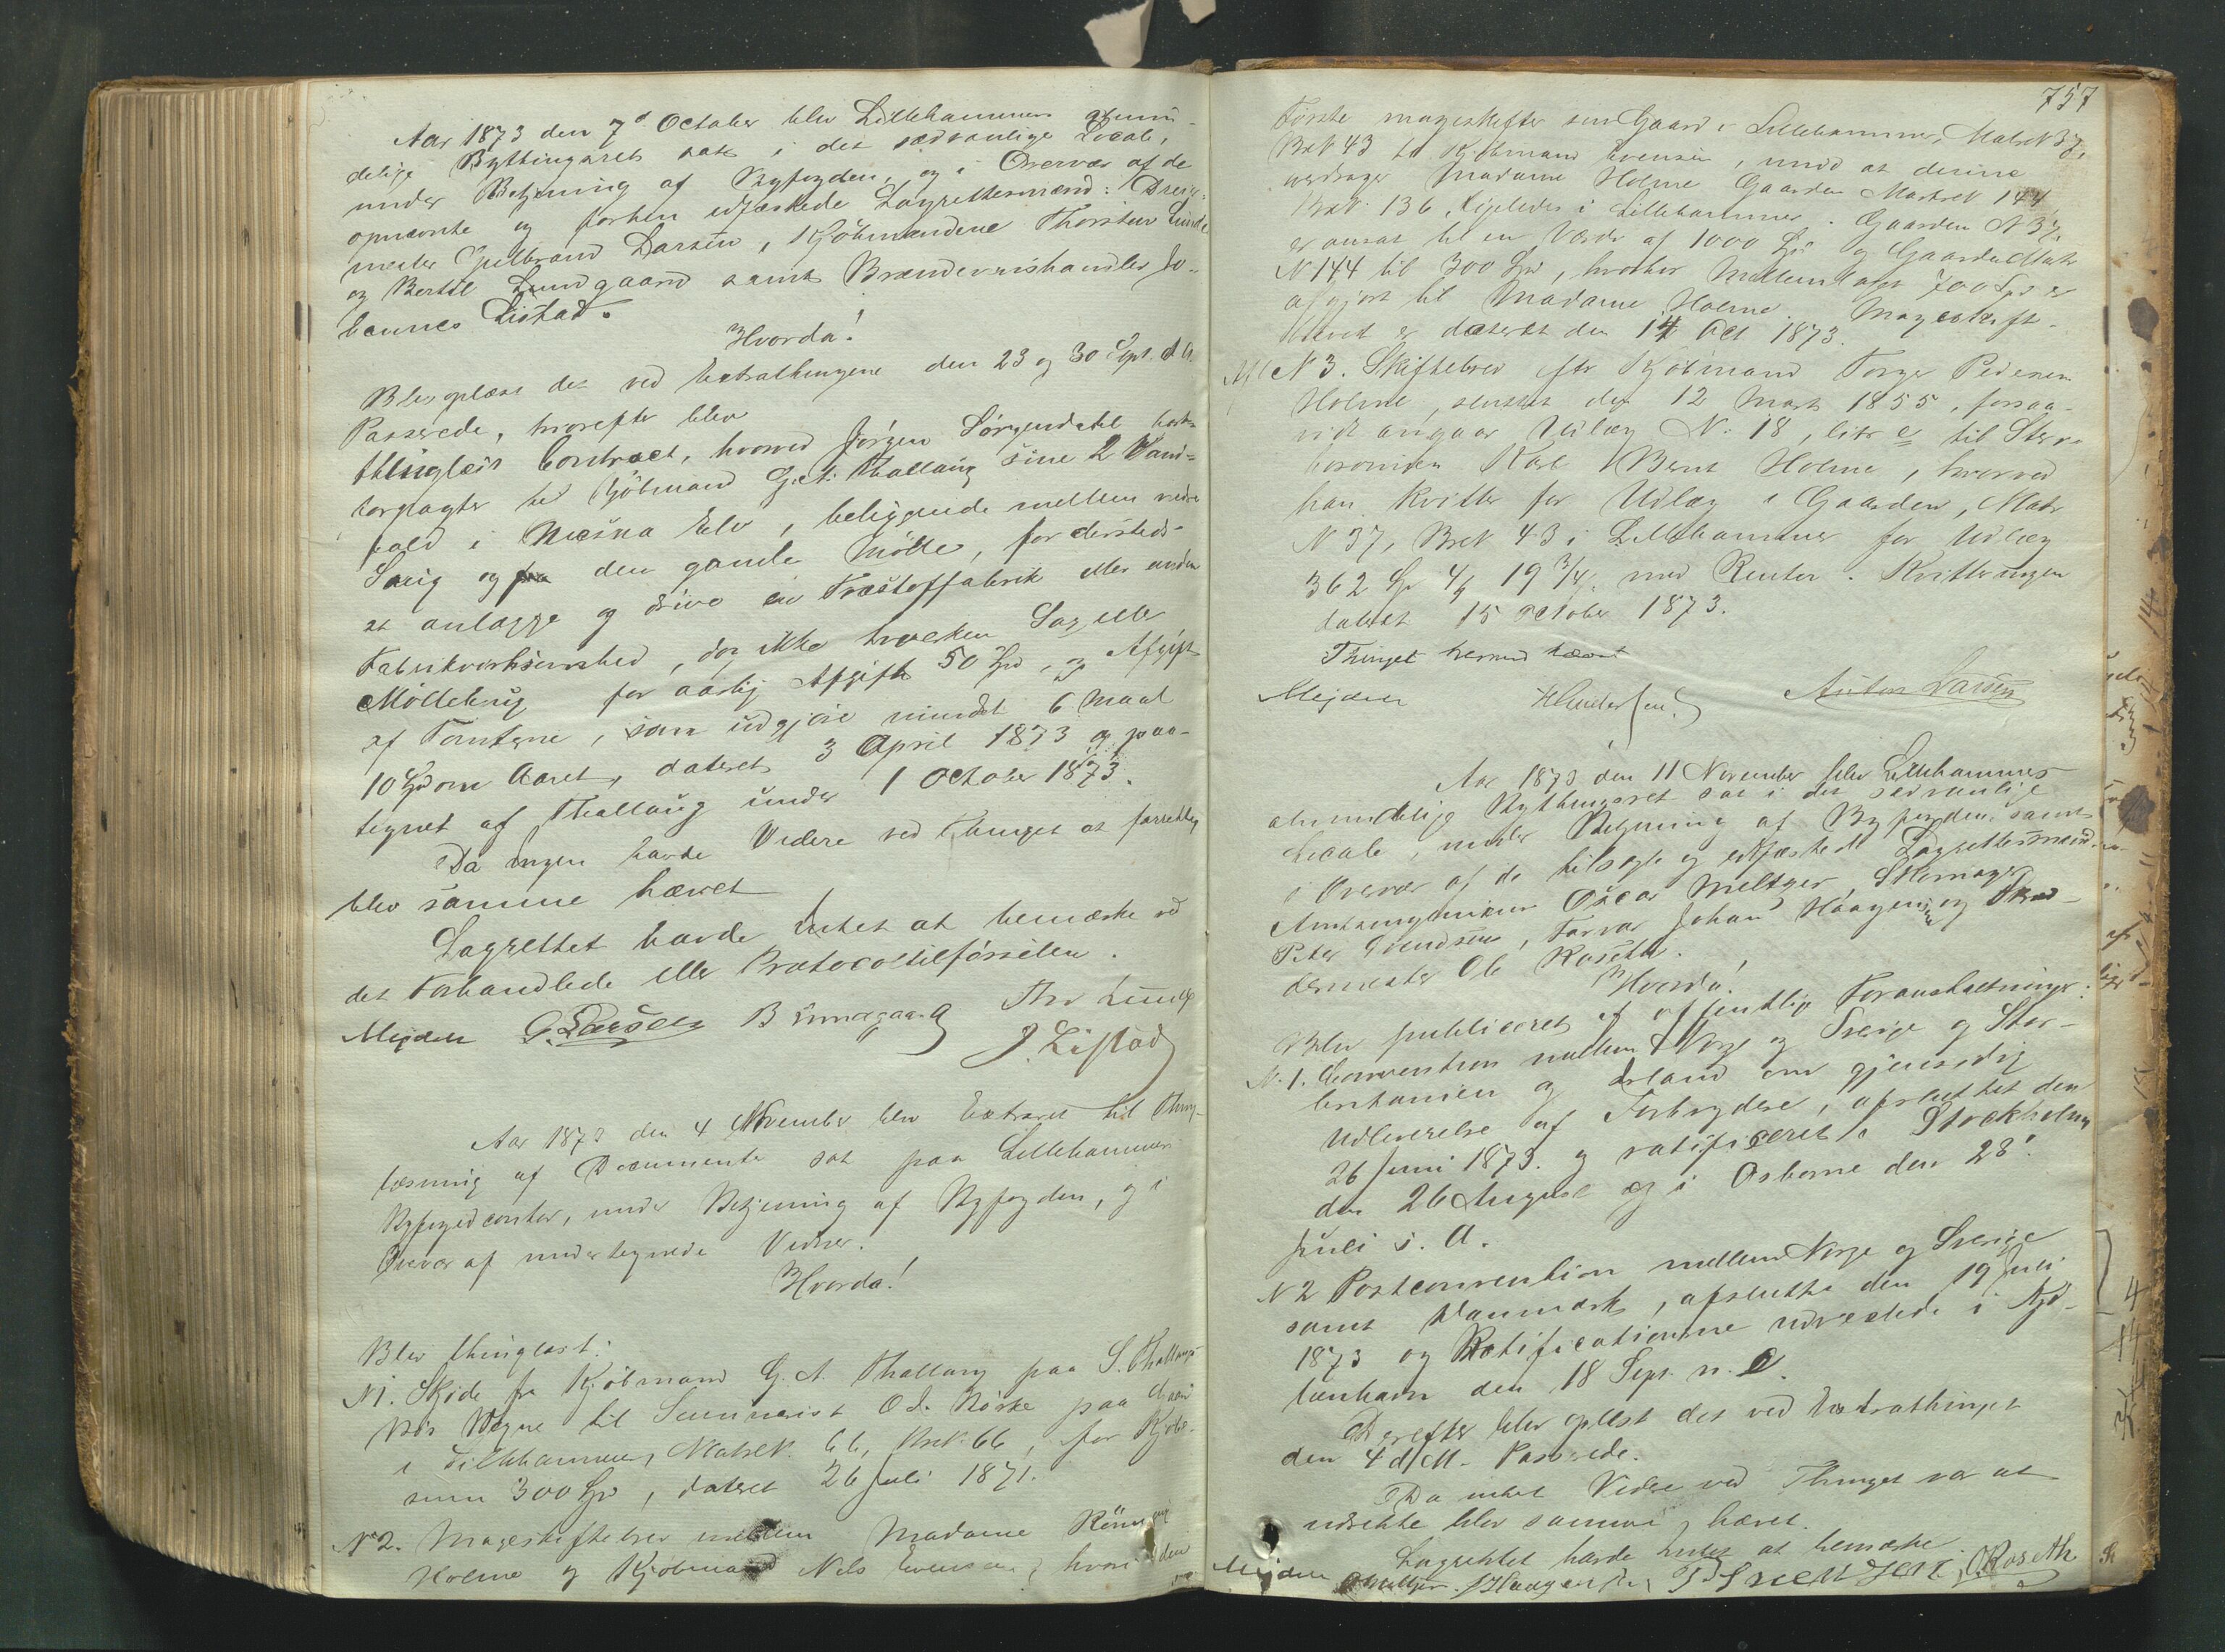 Aar 1873 den 7de October blev Lillehammers almin-
delige Bythingsret sat i det sædvanlige Locale,
under Betjening af Byfogden, og i Overvær af de
opnævnte og forhen edfæstede Lagrettesmænd: Dreier-
mester Gulbrand Larsen, Kjøbmændene Thorsten Lunde
og Bertel Lundgaard samt Brændevinshandler Jo-
hannes Listad.
Hvorda!
Blev oplæst det ved Extrathingene den 23 og 30 Sept. d. A.
Passerede, hvorefter blev
thinglæst Contract, hvorved Jørgen Sørgendahl bort-
forpagter til Kjøbmand G. A. Thallaug sine 2 Vand-
fald i Mesna Elv, beliggende mellem nedre
Saug og den gamle Mølle, for dersteds
at anlægge og drive en Træstoffabrik eller anden
Fabrikvirksomhed, dog ikke hverken Sag eller
Møllebrug for aarlig Afgift 50 Spd, og Afgift
af Tomterne, som udgjøre mindst 6 Maal
10 Spd om Aaret, dateret 3 April 1873 og paa-
tegnet af Thallaug under 1 October 1873.
Da Ingen havde Videre ved Thinget at forrette,
blev samme hævet
Lagrettet havde Intet at bemærke ved
det Forhandlede eller Protocoltilførselen.
Mejdell G. Larsen B Lundgaard Thr Lunde
J. Listad
Aar 1873 den 4 November blev Extraret til Thing-
læsning af Documenter sat paa Lillehammers
Byfogedcontor, under Betjening af Byfogden, og i
Overvær af undertegnede Vidner.
Hvorda!
Blev thinglæst:
N 1. Skjøde fra Kjøbmand G. A. Thallaug paa S. Thallaugs
Bos Vegne til Seminarist O. J. Norke paa Gaard
i Lillehammer, Matr N. 66, Br N. 66, for Kjøbe-
sum 300 Spd, dateret 26 Juli 1871.
N 2. Mageskiftebrev mellem Madame
Holme og Kjøbmand Nils Evensen, hvori den
757
Første mageskifter sin Gaard i Lillehammer, Matr N 37,
Br N 43 til Kjøbmand Evensen, mod at denne
overdrager Madame Holme Gaarden Matr N 144
Br N. 136, ligeledes i Lillehammer. Gaarden N 37
er ansat til en Værdi af 1000 Spd og Gaarden Matr
N 144 til 300 Spd, hvorhos Mellemlaget 700 Spd er
afgjort til Madame Holme. Mageskift-
Brevet er dateret den 14 Oct 1873.
N 3. Skiftebrev efter Kjøbmand Torger Pedersen
Holme, sluttet den 12 Marts 1855, forsaa-
vidt angaar Udlæg N. 18, litr e til Sterv-
boesønnen Karl Bernt Holme, hvorved
han kvitter for Udlæg i Gaarden, Matr
N 37, Br N 43 i Lillehammer for Udlæg
362 Sp 4 19 3/4 med Renter. Kvitteringen
dateret 15 October 1873.
Thinget hermed hævet
Mejdell Anton Larsen
Aar 1873 den 11 November blev Lillehammers
almindelige Bythingsret sat i det sædvanlige
Locale, under Betjening af Byfogden, samt
i Overvær af de tilsagte og edfæstede Lagrettesmænd:
Amtsingeniør Oscar Meltzer, Skomager
Peter Svendsen, Farver Johan Haagensen og Skræd-
dermester Ole Roseth.
Hvorda!
Blev publiceret af offentlige Foranstaltninger:
N. 1. Convention mellem Norge og Sverige og Stor-
britanien og Irland om gjensidig
Udleverelse af Forbrydere, afsluttet den
26 Juni 1873. og ratificeret i Stockholm
den 26 August og i Osborne den 28.
Juli s. A.
N 2 Postconvention mellem Norge og Sverige
samt Danmark, afsluttet den 19 Juli
1873 og Ratificationerne udvexlede i Kjø-
benhavn den 18 Sept. n. e.
Derefter blev oplæst det ved Extrathinget
den 4 d/M. Passerede.
Da intet Videre ved Thinget var at
udrette blev samme hævet.
Lagrettet havde Intet at bemærke
Mejdell OMeltzer. JHaagensen P Svendsen. O. Roseth